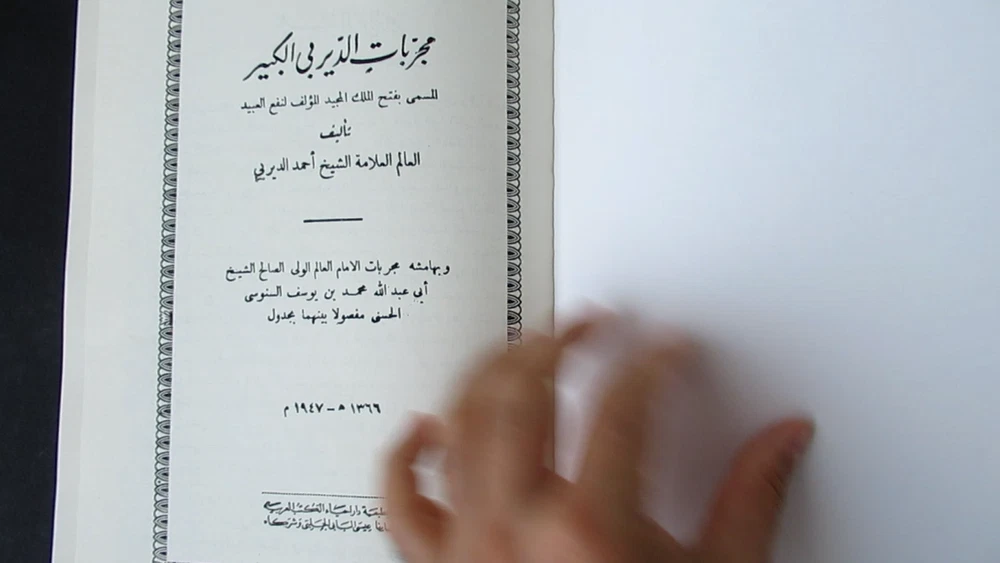 مجرّبات الدّيربي الكبير
المسمى بفتح الملك المجيد المؤلف لنفع العبيد
تأليف
العالم العلامة الشيخ أحمد الديربي
وبهامشه مجربات الامام العالم الولى الصالح الشيخ
أبي عبد الله محمد بن يوسف السنوسى
الحسنى مفصولا بينهما بجدول
١٣٦٦ ھ - ١٩٤٧ م
دار احياء الكتب العربية
عيسى البابى الحلبى وشركاه